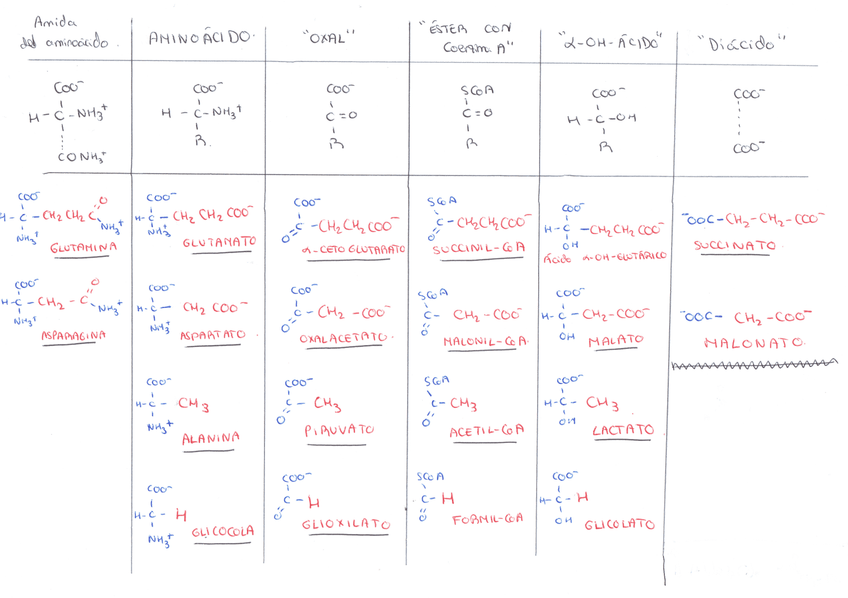 Amida del aminoácido. AMINOÁCIDO. "OXAL" "ÉSTER CON Coenzim. A" "α-OH-ÁCIDO" "Diácido"
COO⁻ COO⁻ COO⁻ SCoA COO⁻ COO⁻
H-C-NH3⁺ H-C-NH3⁺ C=O C=O H-C-OH
CONH3⁺ R. R R R COO⁻
COO⁻ COO⁻ COO⁻ SCoA COO⁻
H-C-CH2CH2C O H-C-CH2CH2COO⁻ C-CH2CH2COO⁻ C-CH2CH2COO⁻ H-C-CH2CH2COO⁻ ⁻OOC-CH2-CH2-COO⁻
NH3⁺ NH3⁺ NH3⁺ O O OH
GLUTAMINA GLUTAMATO α-CETOGLUTARATO SUCCINIL-CoA Ácido α-OH-GLUTÁRICO SUCCINATO
COO⁻ COO⁻ COO⁻ SCoA COO⁻
H-C-CH2-C O H-C-CH2COO⁻ C-CH2-COO⁻ C-CH2-COO⁻ H-C-CH2-COO⁻ ⁻OOC-CH2-COO⁻
NH3⁺ NH3⁺ NH3⁺ O O OH
ASPARAGINA ASPARTATO OXALACETATO. MALONIL-CoA. MALATO MALONATO.
COO⁻ COO⁻ SCoA COO⁻
H-C-CH3 C-CH3 C-CH3 H-C-CH3
NH3⁺ O O OH
ALANINA PIRUVATO ACETIL-CoA LACTATO
COO⁻ COO⁻ SCoA COO⁻
H-C-H C-H C-H H-C-H
NH3⁺ O O OH
GLICOCOLA GLIOXILATO FORMIL-CoA GLICOLATO